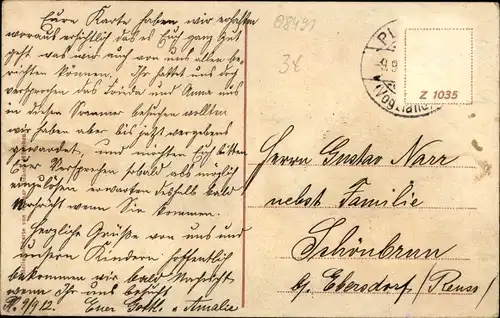 Eure Karte haben wir erhalten
woraus ersichtlich das es Euch ganz gut
geht was wir auch von uns allen be-
richten können. Ihr hattet uns doch
versprochen das Linda und Anna uns
in diesem Sommer besuchen wollten
wir haben aber bis jetzt vergebens
gewartet, und möchten Euch bitten
Euer Versprechen sobald als möglich
einzulösen erwarten deshalb bald
Nachricht wenn Sie kommen.
Herzliche Grüße von uns und
unsern Kindern hoffentlich
bekommen wir bald Nachricht
wenn Ihr uns besucht
Pl. 9/9 12. Euer Gotth. u. Amalie
98491
3€
PL
(Vogtland)
Z 1035
Herrn Gustav Narr
nebst Familie
Schönbrun
b/ Ebersdorf/(Reuss)